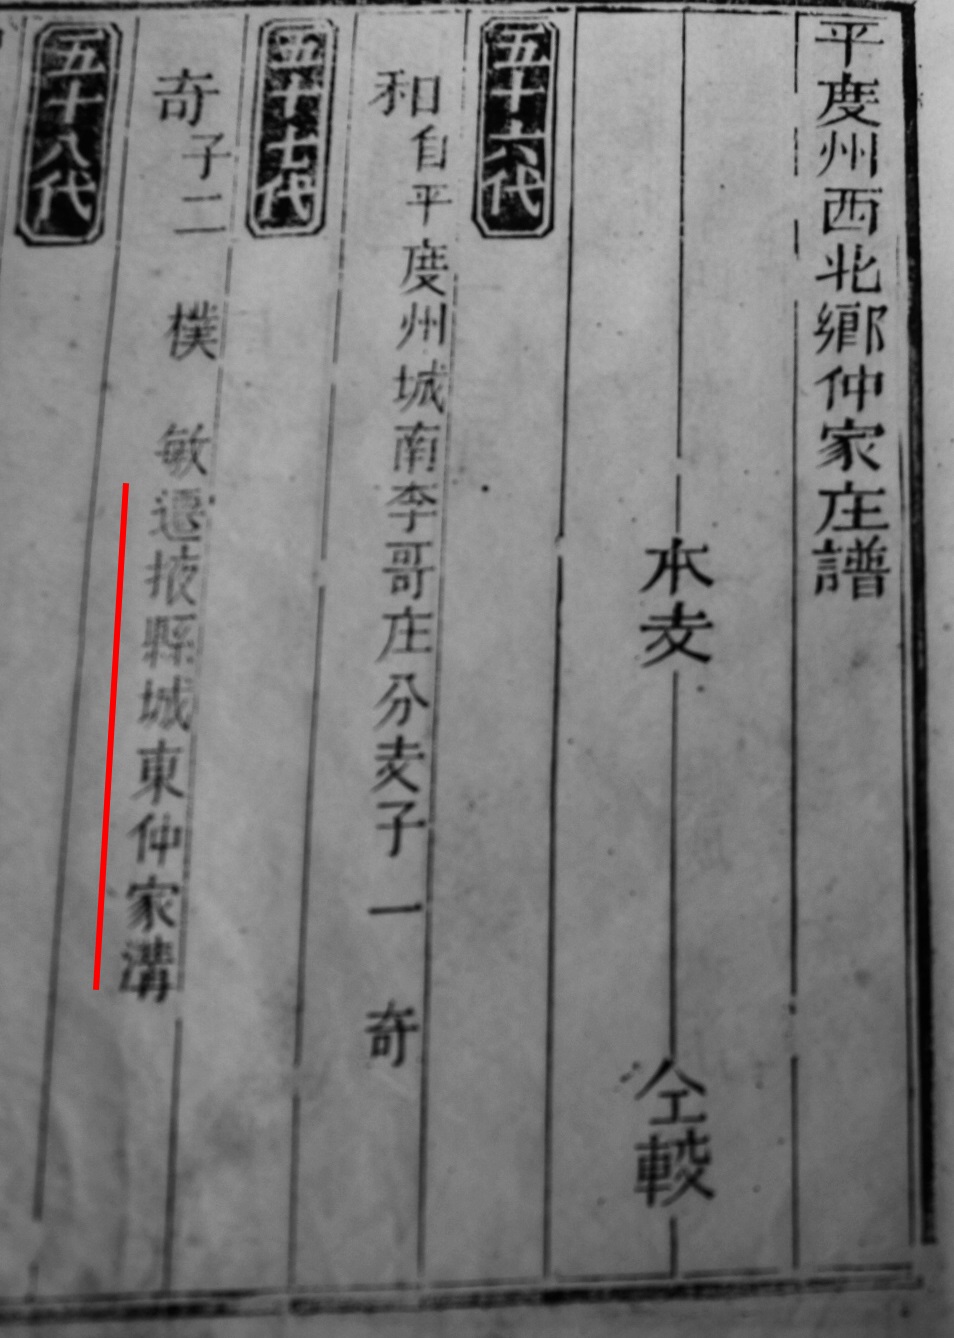 平度州西北鄉仲家庄譜
本支 仝較
五十六代
和自平度州城南李哥庄分支子一 奇
五十七代
奇子二 樸 敏遷掖縣城東仲家溝
五十八代